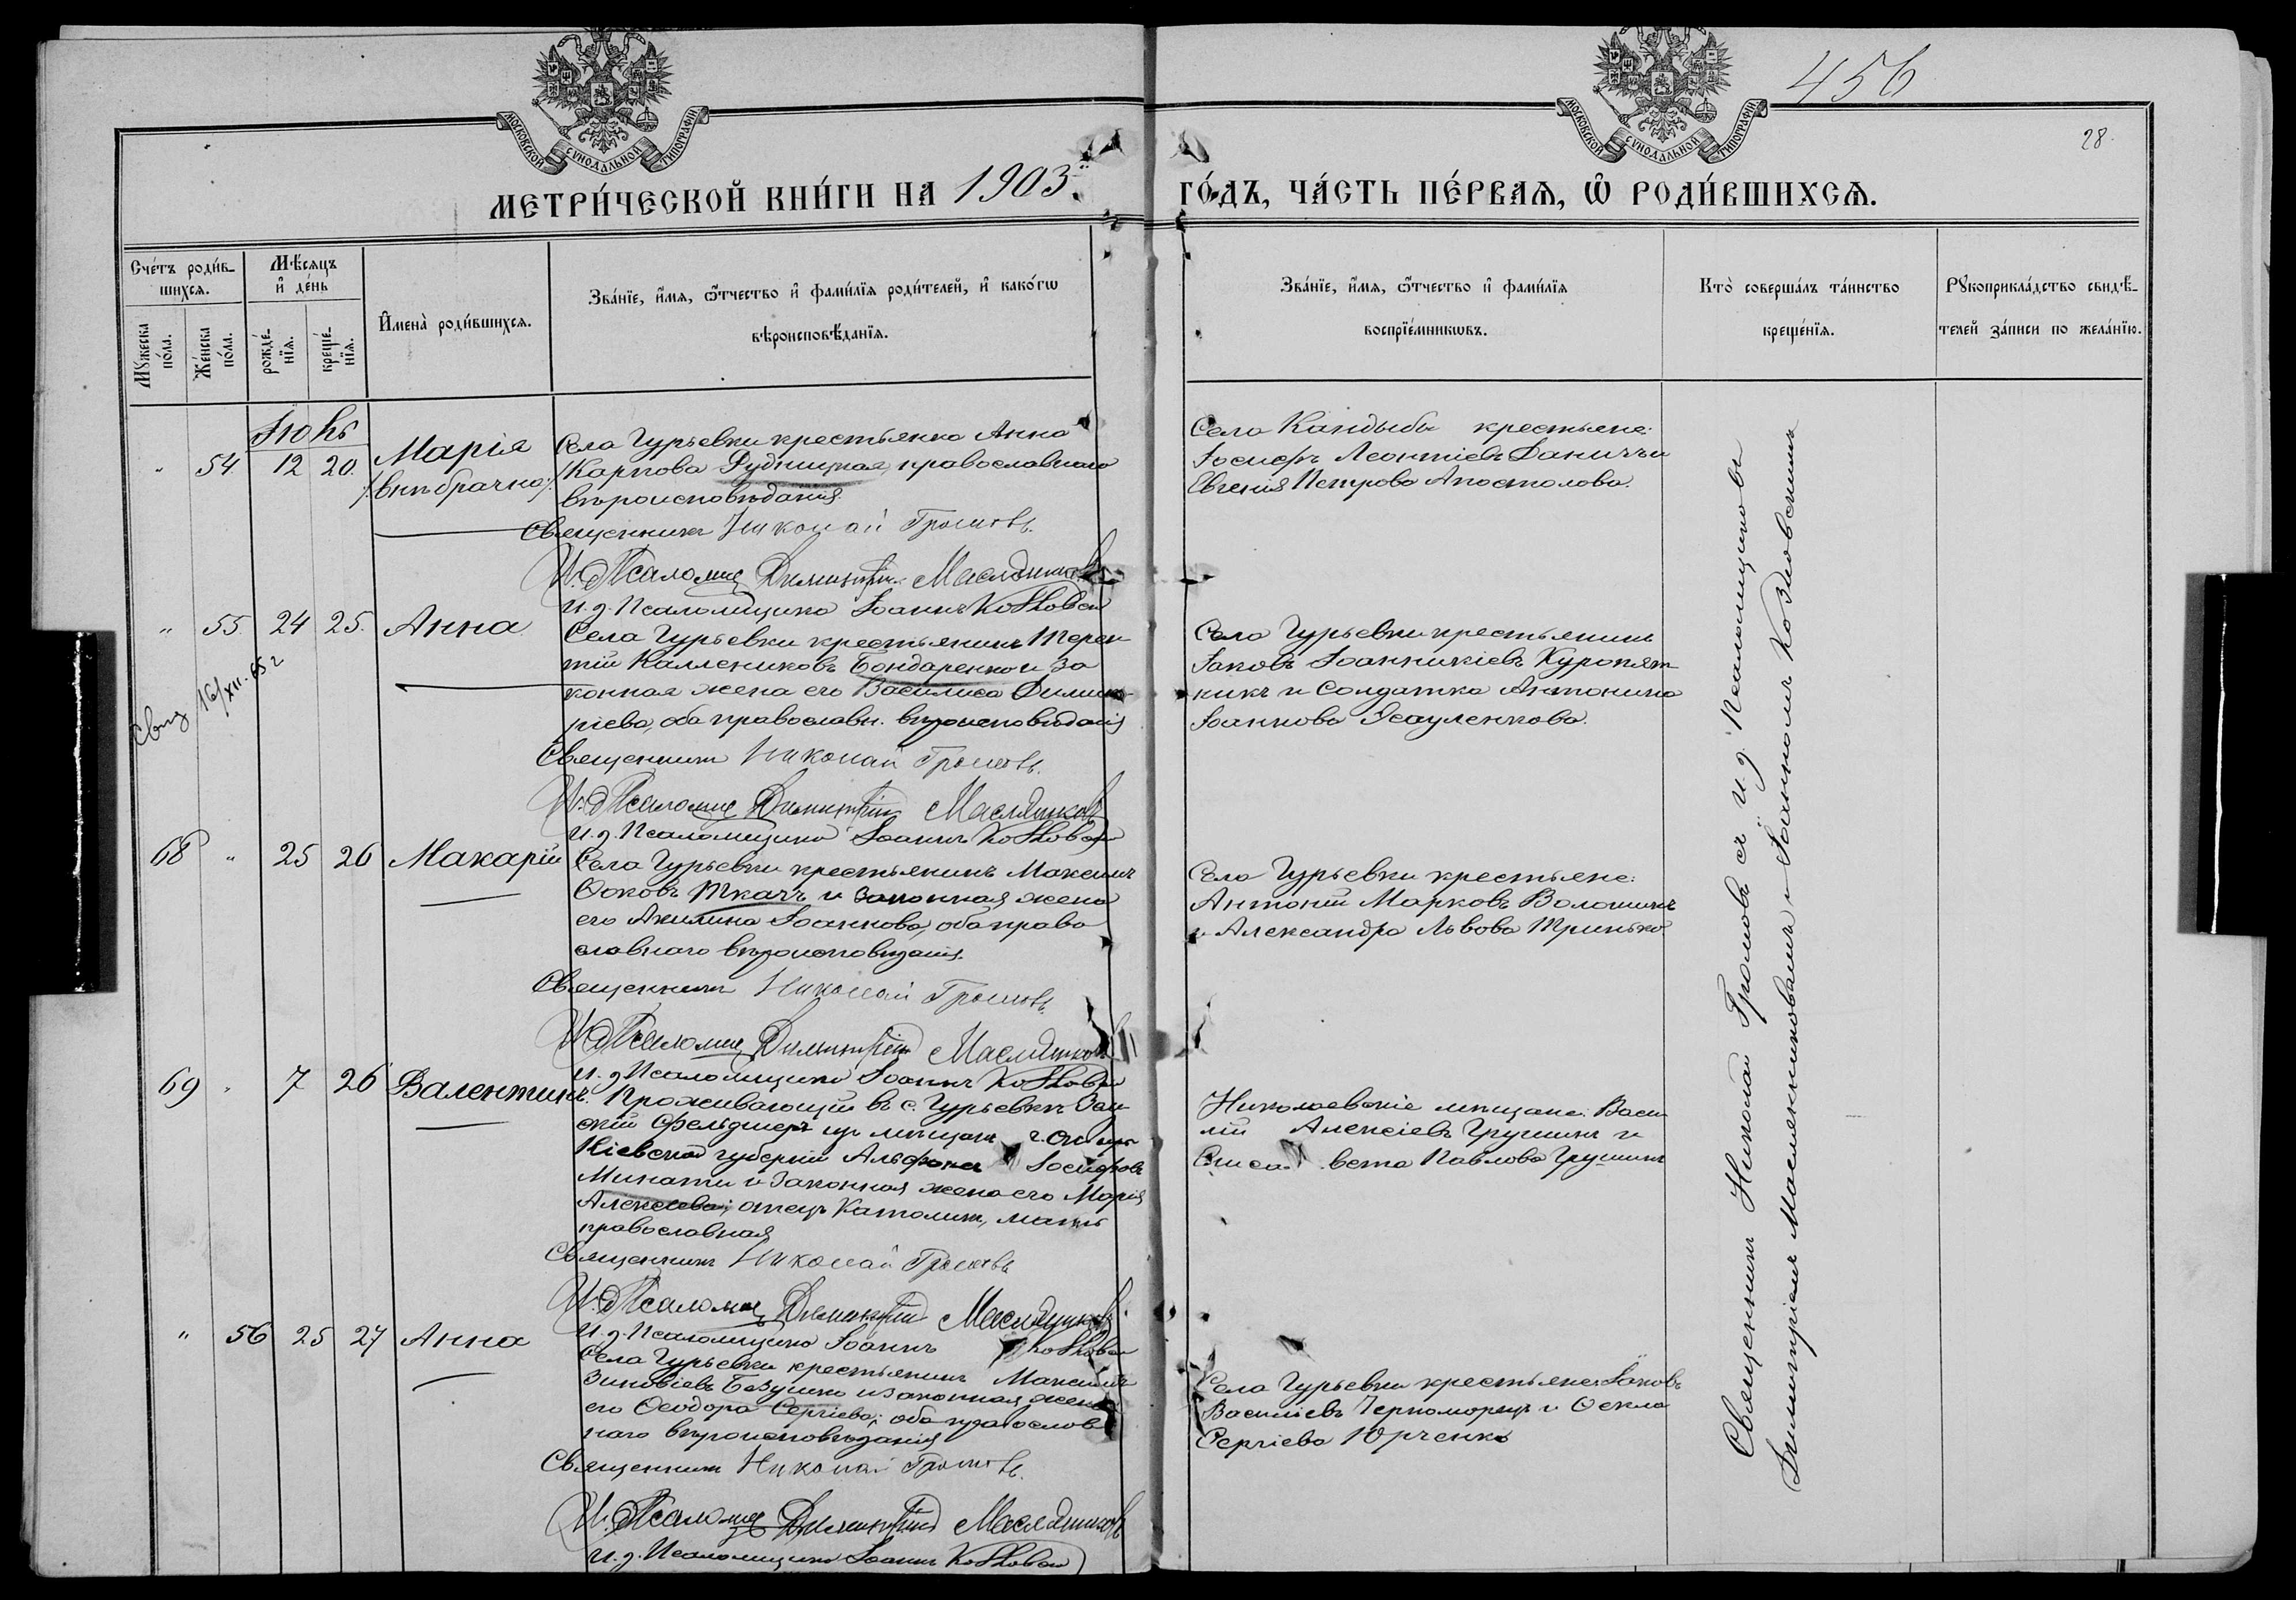 МОСКОВСКОЙ СѴНОДАЛЬНОЙ ТИПОГРАФІИ
МОСКОВСКОЙ СѴНОДАЛЬНОЙ ТИПОГРАФІИ
456
28.
МЕТРИ́ЧЕСКОЙ КНИ́ГИ НА 1903 й
ГО́ДЪ, ЧА́СТЬ ПЕ́РВАѦ, Ѽ РОДИ́ВШИХСѦ.
Сче́тъ роди́в-
шихсѧ.
Мѣ́сѧцъ
и҆ де́нь
Мꙋ́жеска
по́ла.
Же́нска
по́ла.
рожде́-
нїѧ.
креще́-
нїѧ.
И҆мена̀ роди́вшихсѧ.
Зва́нїе, и҆́мѧ, ѻ҆́тчество и҆ фами́лїѧ роди́телей, и҆ како́гѡ
вѣроисповѣ́данїѧ.
Зва́нїе, и҆́мѧ, ѻ҆́тчество и҆ фами́лїѧ
воспрїе́мникѡвъ.
Кто̀ соверша́лъ та́инство
креще́нїѧ.
Рꙋкоприкла́дство свидѣ́-
телей за́писи по жела́нїю.
Іюнь
" 54 12 20. Марія
/:внѣбрачно:/
Села Гурьевки крестьянка Анна
Карпова Рудницкая, православнаго
вѣроисповѣданія.
Священникъ Николай Громовъ.
И. д. Псаломщ Димитрій Масленников
И. д. Псаломщика Іоаннъ Козловск
Села Кандыбы крестьяне:
Іосифъ Леонтіевъ и
Евгенія Петрова Апостолова.
" 55. 24 25. Анна
Села Гурьевки крестьянинъ Терен
тій Каллениковъ Бондаренко и за
конная жена его Василиса Димит
ріева, оба православн. вѣроисповѣданія
Священникъ Николай Громовъ.
И. д. Псаломщ Димитрій Масленников
И. д. Псаломщика Іоаннъ Козловск
Села Гурьевки крестьянинъ
Іаковъ Іоанникіевъ Куропят
никъ и Солдатка Антонина
Іоаннова Есауленкова.
Свид 16/XII-55 г
68 " 25 26 Макарій
Села Гурьевки крестьянинъ Максимъ
Ѳоковъ Ткачъ и законная жена
его Акилина Іоаннова, оба право
славнаго вѣроисповѣданія.
Священникъ Николай Громовъ.
И. д. Псаломщ Димитрій Масленников
И. д. Псаломщика Іоаннъ Козловск
Села Гурьевки крестьяне:
Антоній Марковъ Волошинъ
и Александра Львова Тринько
69 " 7 26 Валентинъ
Проживающій въ с. Гурьевкѣ Зем
скій Фельдшеръ из мѣщанъ г.
Кіевской губерніи Альфонсъ Іосифовъ
Минати и законная жена его Марія
Алексеева; отецъ Католикъ, мать
православная
Священникъ Николай Громовъ
И. д. Псаломщ Димитрій Масленников
И. д. Псаломщика Іоаннъ Козловск
Николаевскіе мѣщане: Васи
лій Алексіевъ Грушинъ и
Елиса вета Павлова Грушинъ
" 56 25 27 Анна
Села Гурьевки крестьянинъ Максимъ
Зиновіевъ и законная жена
его Ѳеодора Сергіева; оба православ
наго вѣроисповѣданія
Священникъ Николай Громовъ.
И. д. Псаломщ Димитрій Масленников
И. д. Псаломщика Іоаннъ Козловск
Села Гурьевки крестьяне: Іаковъ
Василіевъ Черноморецъ и Ѳекла
Сергіева Юрченко
Священникъ Николай Громовъ съ и. д. Псаломщиковъ
Димитріемъ Масленниковымъ и Іоанномъ Козловскимъ